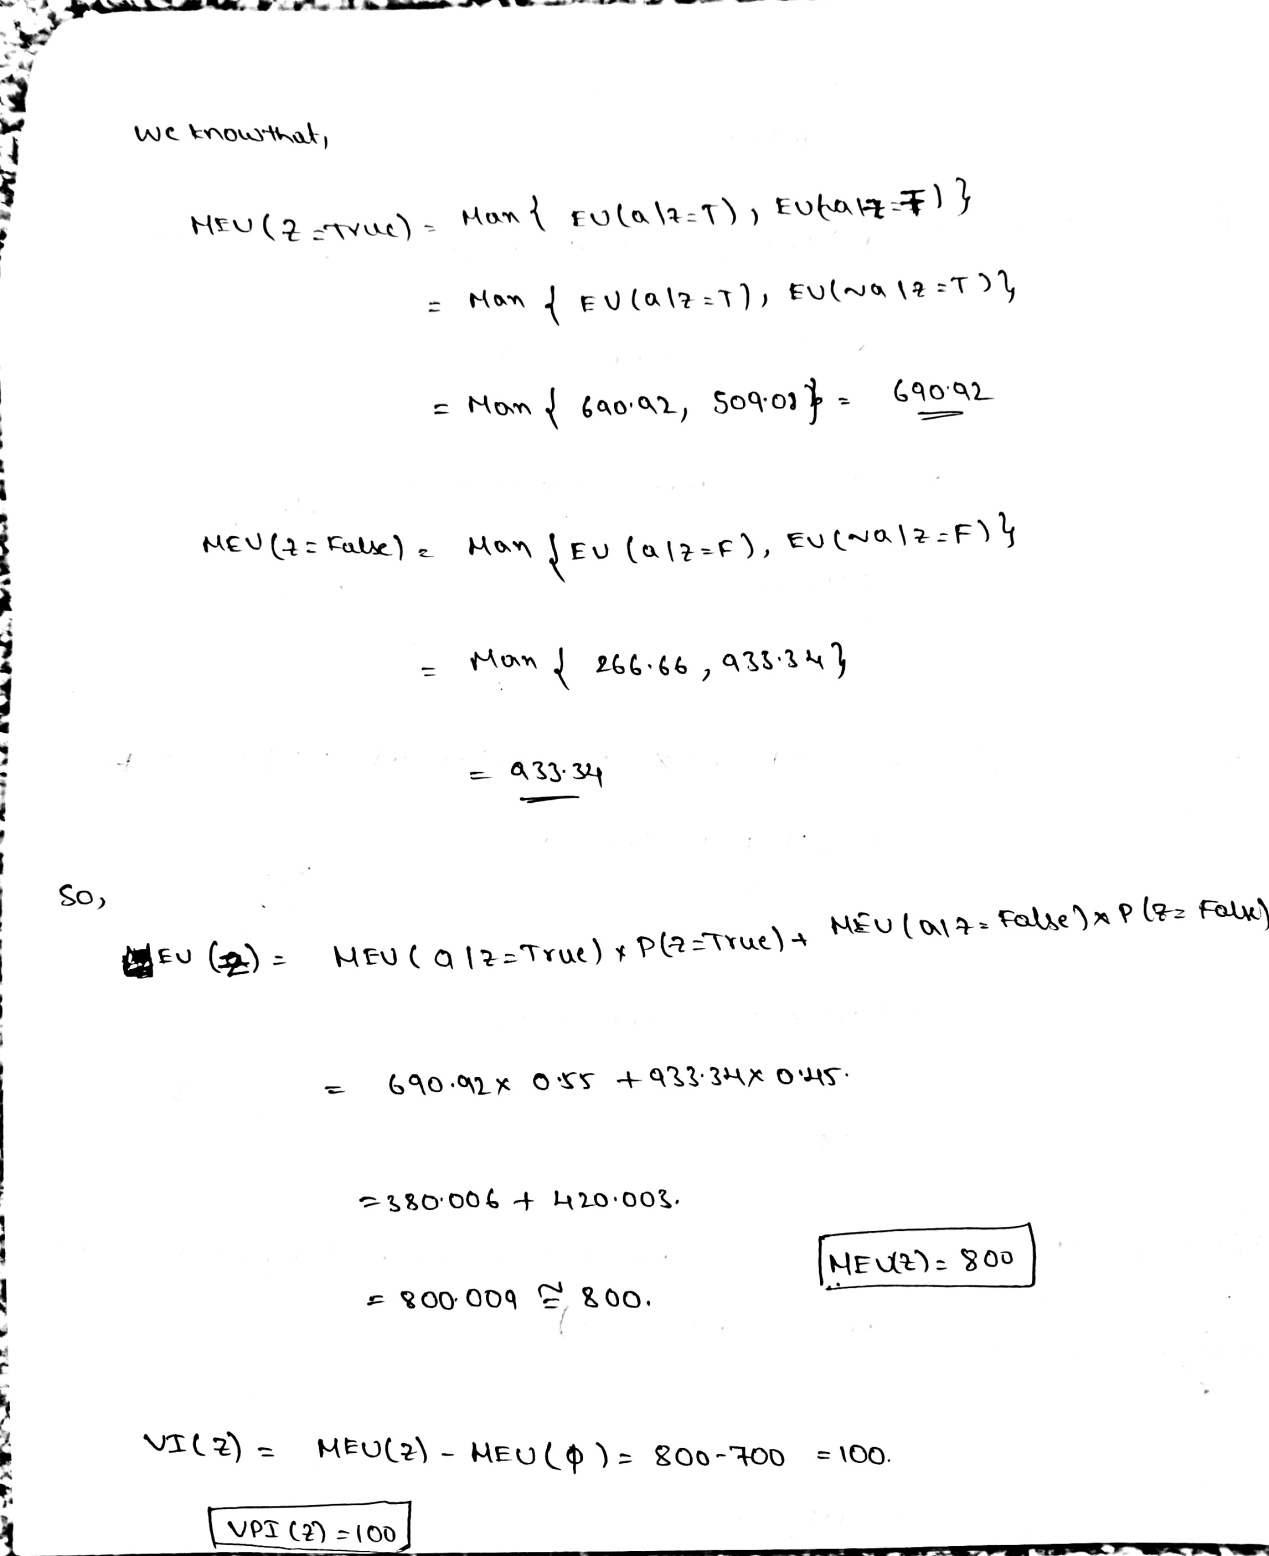 We know that,
MEU (Z = True) = Man { EU(a|z=T), EU(~a|z=T) }
= Man { EU(a|z=T), EU(~a|z=T) }
= Man { 690.92, 509.08 } = 690.92
MEU (Z = False) = Man { EU (a|z=F), EU(~a|z=F) }
= Man { 266.66, 933.34 }
= 933.34
So,
MEU (Z) = MEU ( a|z = True) x P(Z = True) + MEU (a|z = False) x P (Z = False)
= 690.92 x 0.55 + 933.34 x 0.45.
= 380.006 + 420.003.
MEU(Z) = 800
= 800.009 ≅ 800.
VI(Z) = MEU(Z) - MEU(ϕ) = 800-700 = 100.
VPI (Z) = 100